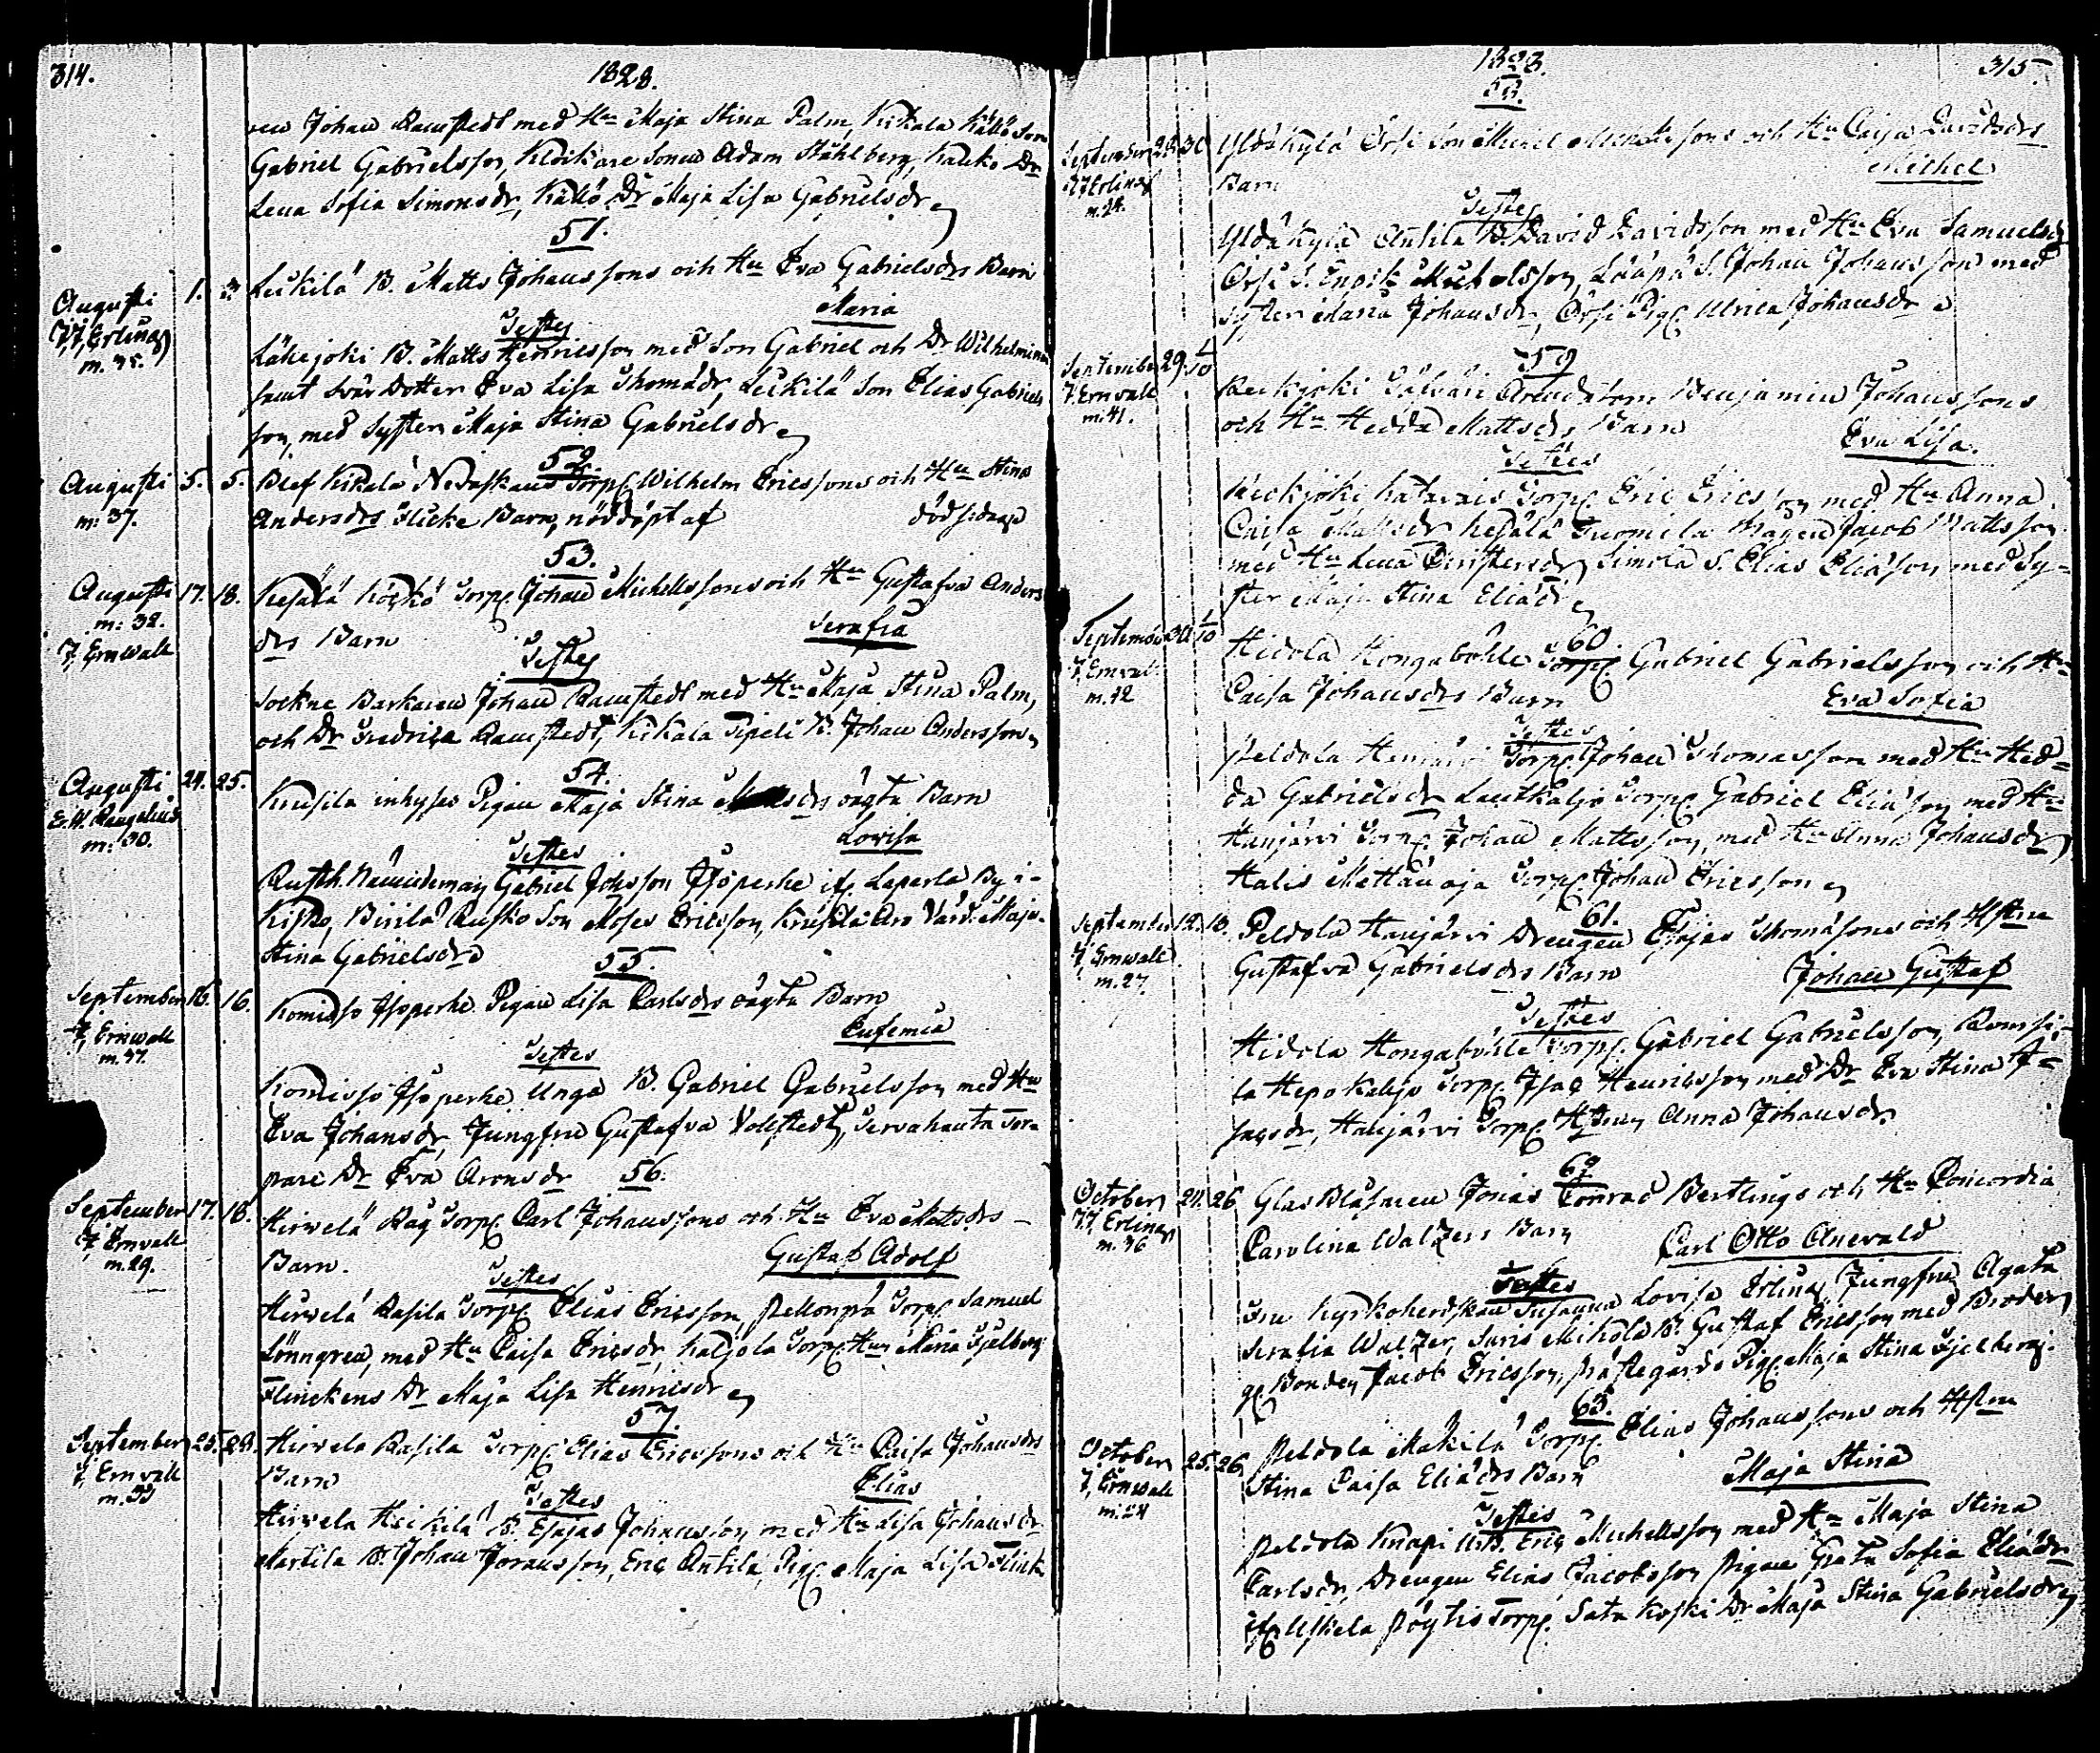 314.
1828.
ren Johan Ramstedt med Hu Maja Stina Palm, Kikala Källö Son
Gabriel Gabrielsson, Klockare Sonen Adam Ståhlberg, Dr
Lena Sofia Simonsdr, Källö Dr Maja Lisa Gabrielsdr
51.
Augusti 1. 3. Leikilä B. Matts Johanssons och Hu Eva Gabrielsdrs Barn
J, J, Erling Maria
m. 35. Testes
B. Matts Henricsson med Son Gabriel och Dr Wilhelmina
samt Svär Dotter Eva Lisa Thomädr, Leikilä Son Elias Gabriels
son, med Syster Maja Stina Gabrielsdr
52.
Augusti 5. 5. Kikala Torp. Wilhelm Ericssons och Hu Stina
m: 37. Andersdrs Barn, nöddöpt af dödfödt
53.
Augusti 17. 18. Kesälä Torp. Johan Michellssons och Hu Gustafva Anders
m: 32. drs Barn Serafia
J, Ernwall Testes
Sockne Barkaren Johan Ramstedt med Hu Maja Stina Palm,
och Dr Fredrica Ramstedt, Kikala Pipeli B. Johan Andersson
54.
Augusti 24. 25. Knusila inhyses Pigan Maja Stina oägta Barn
m: 30. Lovisa
Testes
Rusth. Nämndeman Gabriel Johsson Isoperhe if. Laperla By i
Kisko, Son Moses Ericsson, Knusila Maja
Stina Gabrielsdr
55.
September 15. 16. Komisso Isoperhe Pigan Lisa Carlsdrs oägta Barn
J, Ernwall Eufemia
m. 37. Testes
Komisso Isoperhe Unga B. Gabriel Gabrielsson med Hu
Eva Johansdr, Jungfru Gustafva Vollstedt, Tervahauta Tor
pare Dr Eva Aronsdr
56.
September 17. 18. Hirvelä Torp. Carl Johanssons och Hu Eva Mattsdrs
J, Ernvall Barn. Gustaf Adolf
m. 29. Testes
Hirvelä Rasila Torp. Elias Ericsson, Torp. Samuel
Lönngren, med Hu Caisa Ericsdr, Kaljola Torp. Hu Maria Sjelberg
Flinckens Dr Maja Lisa Henricsdr
57.
September 25. 28. Hirvela Rasila Torp. Elias Ericssons och Hu Caisa Johansdrs
J, Ernvall Barn Elias
m. 33 Testes
Hirvela Heikilä B. Esajas Johansson med Hu Lisa Johansdr
Martila B. Johan Joransson, Eric Antila, Pig. Maja Lisa Flink
1828. 315.
58.
September 28. 30 Yldäkylä Orsi Son Michel Michelssons och Hu Caisa Davidsdrs
J J Erling Barn Michel
m. 24. Testes
Yldäkylä Antila B. David Davidsson med Hu Eva Samuelsdr
Orsi S. Michelsson, S. Johan Johansson med
Syster Maria Johansdr, Orsi Pig. Ulrica Johansdr
59
September 29. 1/10 Benjamin Johanssons
J. Ernvall och Hu Hedda Mattsdrs Barn Eva Lisa.
m: 41. Testes
Torp. Eric Ericsson med Hu Anna
Caisa Mattsdr Kesälä Tuomila Mågen Jacob Mattsson
med Hu Lena Christersdr, Simola S. Elias Eliäson med Sy-
ster Maja Stina Eliädr
60.
September 30 1/10 Hidola Hongaböhle Torp. Gabriel Gabrielsson och Hu
J, Ernvall Caisa Johansdrs Barn Eva Sofia
m. 42 Testes
Peldola Hanjärvi Torp. Johan Thomasson med Hu Hed=
da Gabrielsdr Lautkaljo Torp. Gabriel Eliäson med Hu
Hanjärvi Torp. Johan Mattsson, med Hu Anna Johansdr,
Halis Torp. Johan Ericsson
61.
September 12. 13. Peldola Hanjärvi Drengen Esajas Thomäsons och Hstru
J, Ernwall Gustafva Gabrielsdrs Barn Johan Gustaf
m. 27. Testes
Hidola Hongaböhle Torp. Gabriel Gabrielsson,
la Hepokaljo Torp. Isac Henricsson med Dr Eva Stina I=
sacsdr, Hanjärvi Torp. Hstrun Anna Johansdr
62
October 24. 26 Glas Blåsaren Jonas Conrad Bertlings och Hu Concordia
J, J, Erling Carolina Walzers Barn Carl Otto Anevald
m. 36 Testes
Fru Kyrkoherdskan Susanna Lovisa Erling, Jungfru Agata
Serafia Walzer, Saris Mikola B. Gustaf Ericsson med Broder
g. Bonden Jacob Ericsson, Prästegårds Pig. Maja Stina Sjelberg.
63.
October 25. 26 Peldola Makilä Torp. Elias Johanssons och Hstru
J, Ernwall Stina Caisa Eliädrs Barn Maja Stina
m: 24 Testes
Peldola Knapi B. Eric Michellsson med Hu Maja Stina
Carlsdr, Drengen Elias Jacobsson Pigan Greta Sofia Eliädr
if. Uskela Pöytis Torp. Satakoski Dr Maja Stina Gabrielsdr